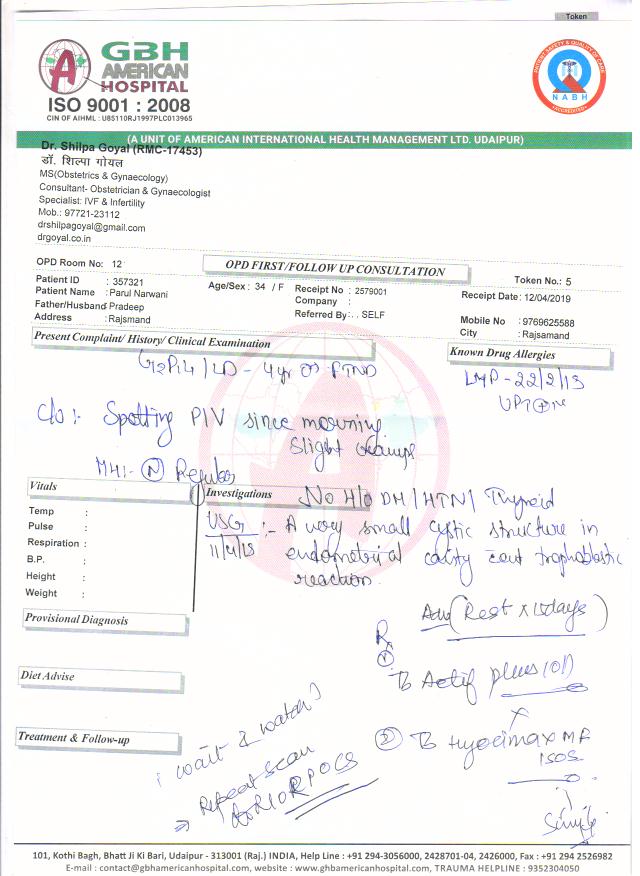 Token
GBH
AMERICAN
HOSPITAL
ISO 9001 : 2008
CIN OF AIHML : U85110RJ1997PLC013965
PATIENT SAFETY & QUALITY OF CARE
NABH
ACCREDITED
(A UNIT OF AMERICAN INTERNATIONAL HEALTH MANAGEMENT LTD. UDAIPUR)
Dr. Shilpa Goyal (RMC-17453)
डॉ. शिल्पा गोयल
MS(Obstetrics & Gynaecology)
Consultant- Obstetrician & Gynaecologist
Specialist: IVF & Infertility
Mob.: 97721-23112
drshilpagoyal@gmail.com
drgoyal.co.in
OPD Room No: 12
OPD FIRST/FOLLOW UP CONSULTATION
Token No.: 5
Patient ID : 357321
Age/Sex: 34 / F
Receipt No : 2579001
Receipt Date: 12/04/2019
Patient Name : Parul Narwani
Company :
Father/Husband: Pradeep
Referred By: . . SELF
Mobile No : 9769625588
Address : Rajsmand
City : Rajsamand
Present Complaint/ History/ Clinical Examination
Known Drug Allergies
LD - 4yr FTND
LMP - 22/2/13
UPT
C/o :- Spotting P/V since morning
Slight cramps
MH:- N Regular
Vitals
Investigations
No H/O DM / HTN / Thyroid
Temp :
Pulse :
Respiration :
B.P. :
Height :
Weight :
USG :- A very small cystic structure in
endometrial cavity trophoblastic
reaction.
Provisional Diagnosis
Adv (Rest x days)
Rx
1
Diet Advise
T Actif plus (01)
Treatment & Follow-up
wait & watch
Repeat scan
to R/O RPOCS
2 T
101, Kothi Bagh, Bhatt Ji Ki Bari, Udaipur - 313001 (Raj.) INDIA, Help Line : +91 294-3056000, 2428701-04, 2426000, Fax : +91 294 2526982
E-mail : contact@gbhamericanhospital.com, website : www.gbhamericanhospital.com, TRAUMA HELPLINE : 9352304050